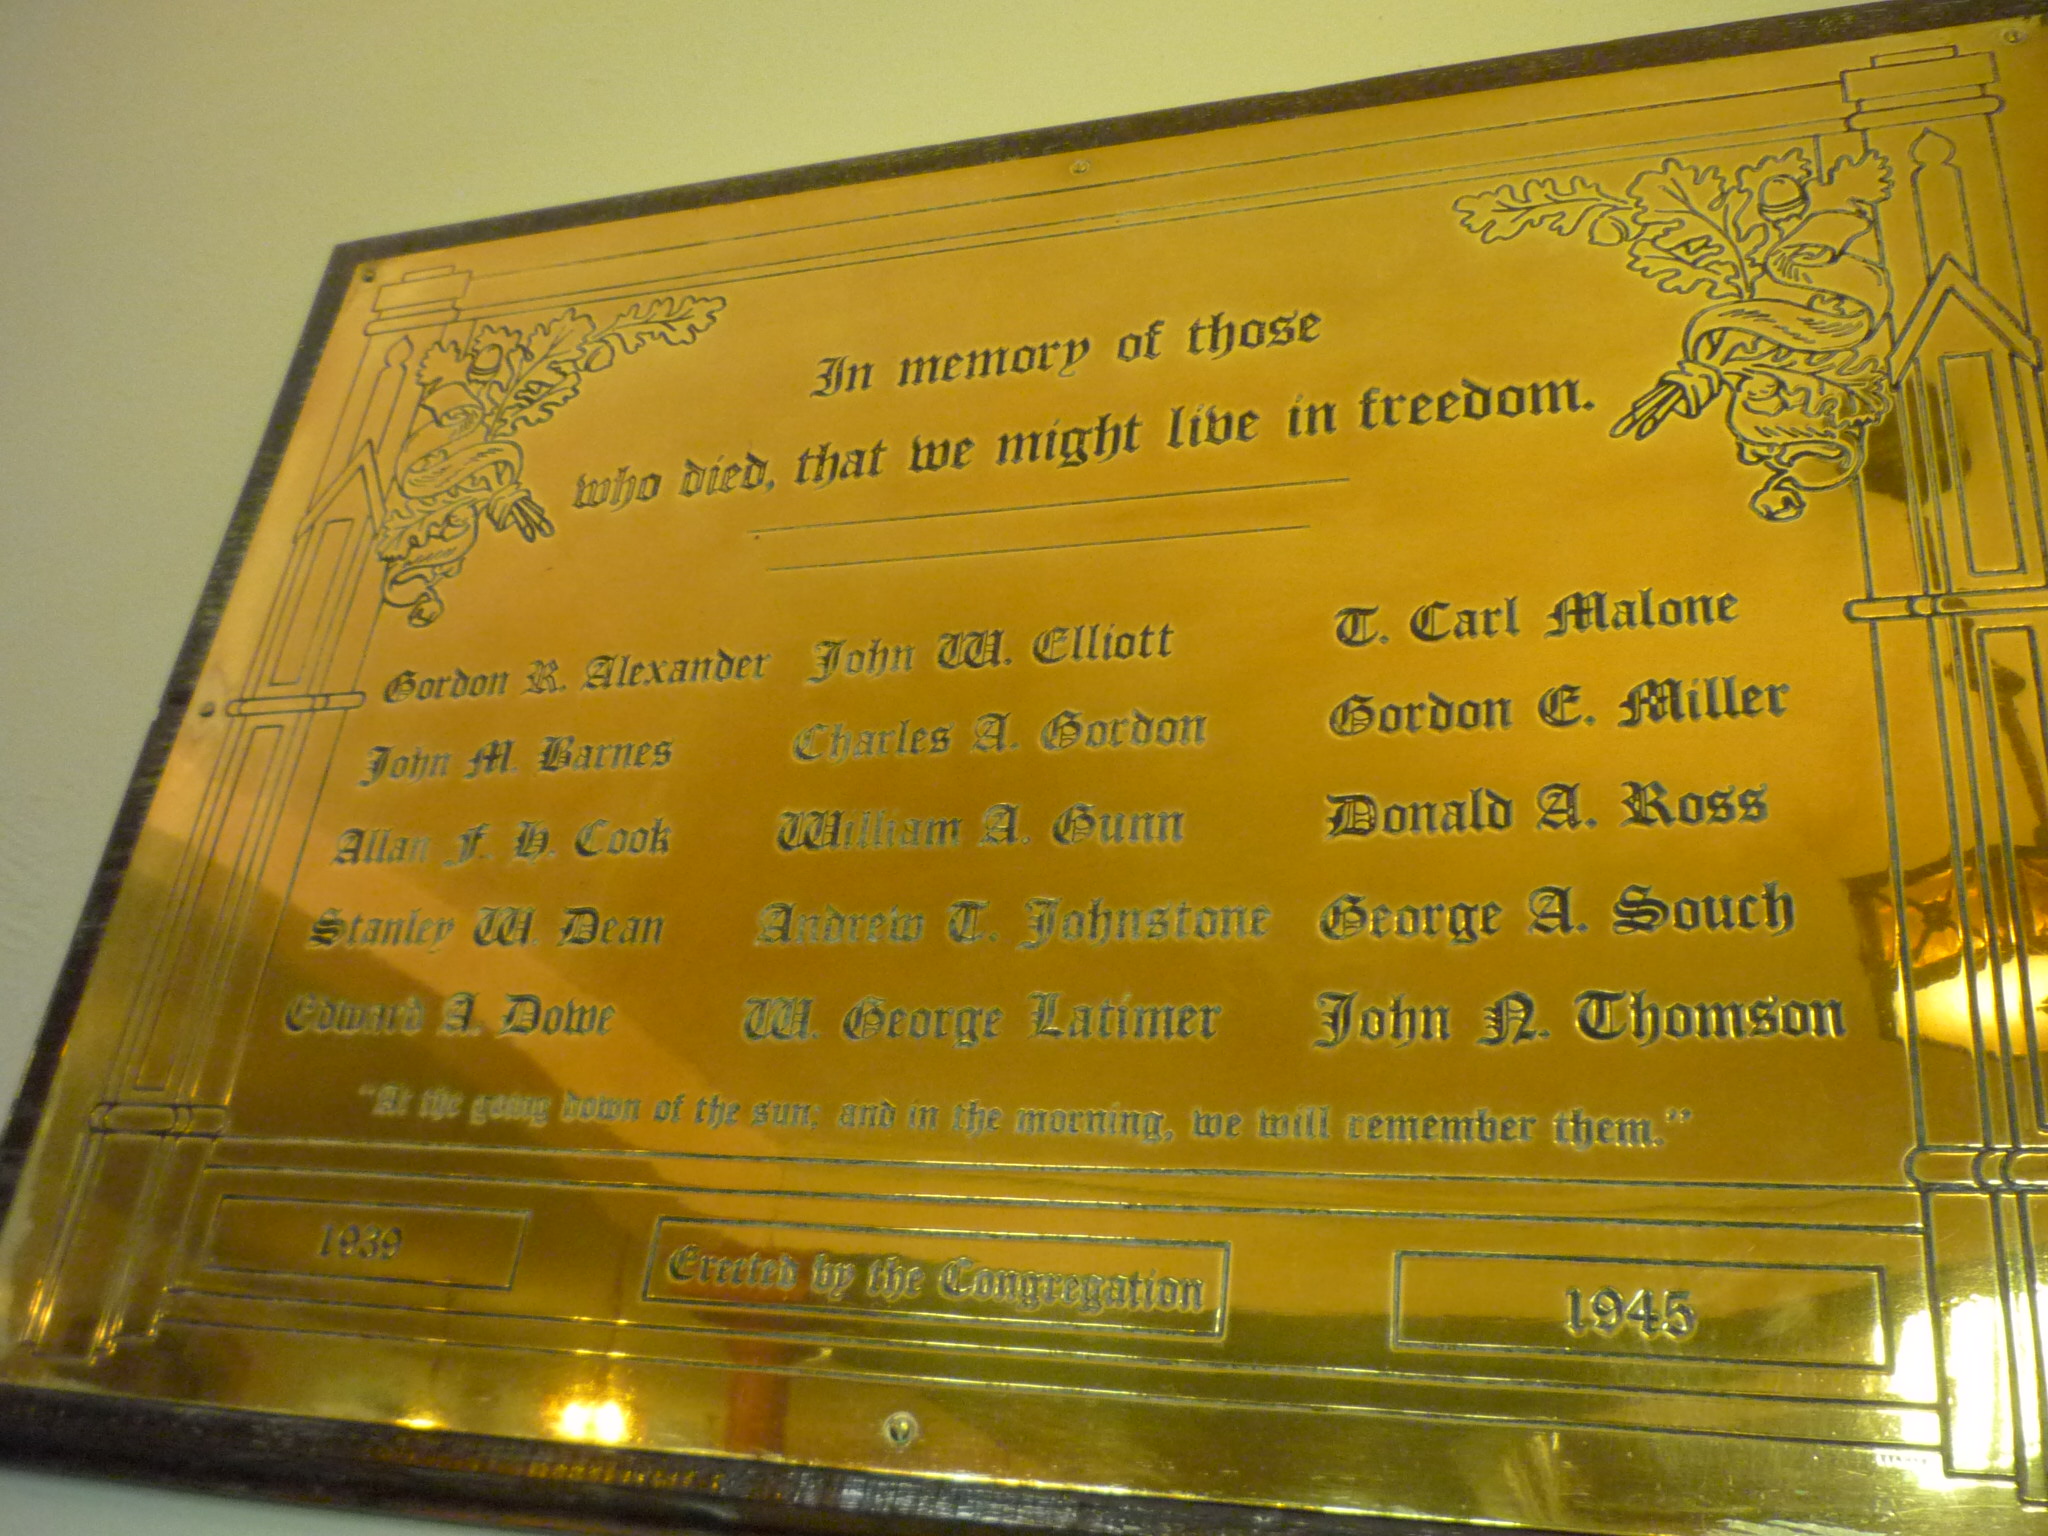 In memory of those
who died, that we might live in freedom.
Gordon R. Alexander
John M. Barnes
Allan F. H. Cook
Stanley W. Dean
Edward A. Dowe
John W. Elliott
Charles A. Gordon
William A. Gunn
Andrew T. Johnstone
W. George Latimer
T. Carl Malone
Gordon E. Miller
Donald A. Ross
George A. Souch
John N. Thomson
"At the going down of the sun; and in the morning, we will remember them."
1939
Erected by the Congregation
1945